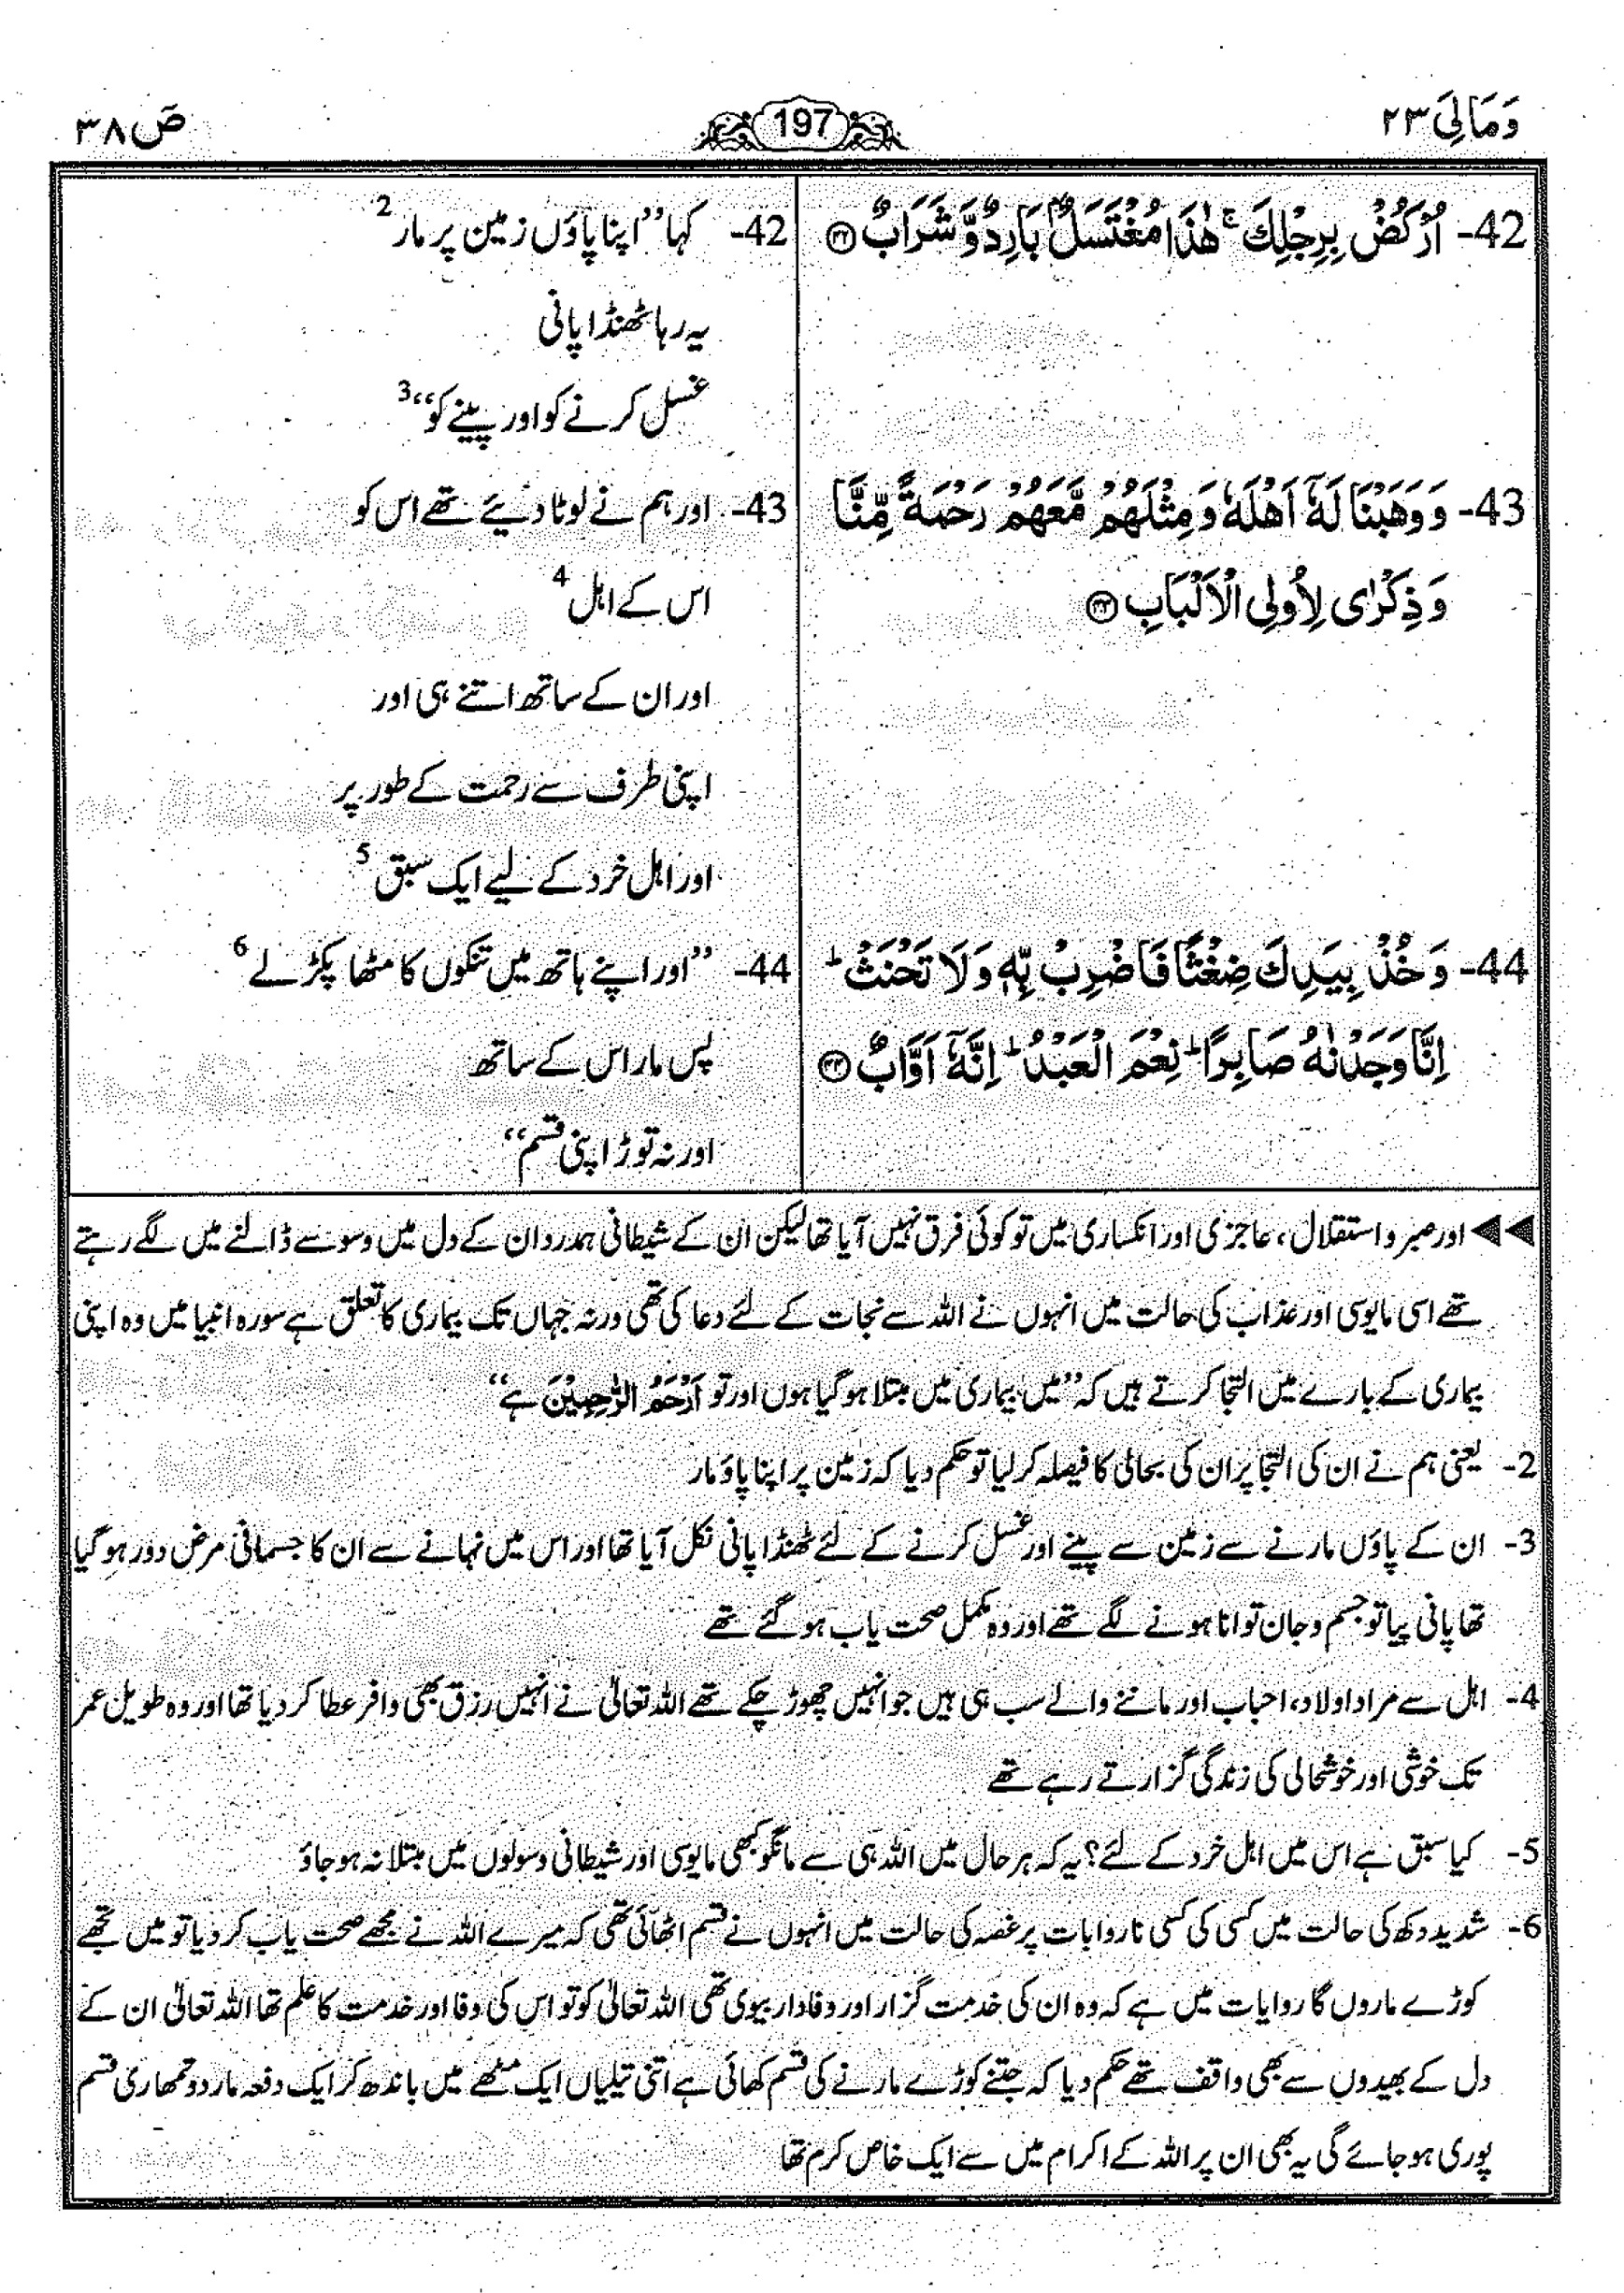 وَمَالِیَ ۲۳
197
صٓ ۳۸
42- اُرْكُضْ بِرِجْلِكَ ۚ هٰذَا مُغْتَسَلٌۢ بَارِدٌ وَّشَرَابٌ ﴿۴۲﴾
43- وَوَهَبْنَا لَهٗٓ اَهْلَهٗ وَمِثْلَهُمْ مَّعَهُمْ رَحْمَةً مِّنَّا
وَذِكْرٰى لِاُولِى الْاَلْبَابِ ﴿۴۳﴾
44- وَخُذْ بِيَدِكَ ضِغْثًا فَاضْرِبْ بِّهٖ وَلَا تَحْنَثْ ؕ
اِنَّا وَجَدْنٰهُ صَابِرًا ؕ نِعْمَ الْعَبْدُ ؕ اِنَّهٗٓ اَوَّابٌ ﴿۴۴﴾
42- کہا ’’اپنا پاؤں زمین پر مار 2
یہ رہا ٹھنڈا پانی
غسل کرنے کو اور پینے کو‘‘ 3
43- اور ہم نے لوٹا دیئے تھے اس کو
اس کے اہل 4
اور ان کے ساتھ اتنے ہی اور
اپنی طرف سے رحمت کے طور پر
اور اہل خرد کے لیے ایک سبق 5
44- ’’اور اپنے ہاتھ میں تنکوں کا مٹھا پکڑ لے 6
پس مار اس کے ساتھ
اور نہ توڑ اپنی قسم‘‘
◀◀ اور صبر و استقلال، عاجزی اور انکساری میں تو کوئی فرق نہیں آیا تھا لیکن ان کے شیطانی ہمدرد ان کے دل میں وسوسے ڈالنے میں لگے رہتے
تھے اسی مایوسی اور عذاب کی حالت میں انہوں نے اللہ سے نجات کے لئے دعا کی تھی ورنہ جہاں تک بیماری کا تعلق ہے سورہ انبیا میں وہ اپنی
بیماری کے بارے میں التجا کرتے ہیں کہ ’’میں بیماری میں مبتلا ہو گیا ہوں اور تو اَرْحَمُ الرّٰحِمِیْنَ ہے‘‘
2- یعنی ہم نے ان کی التجا پر ان کی بحالی کا فیصلہ کر لیا تو حکم دیا کہ زمین پر اپنا پاؤ مار
3- ان کے پاؤں مارنے سے زمین سے پینے اور غسل کرنے کے لئے ٹھنڈا پانی نکل آیا تھا اور اس میں نہانے سے ان کا جسمانی مرض دور ہو گیا
تھا پانی پیا تو جسم و جان توانا ہونے لگے تھے اور وہ مکمل صحت یاب ہو گئے تھے
4- اہل سے مراد اولاد، احباب اور ماننے والے سب ہی ہیں جو انہیں چھوڑ چکے تھے اللہ تعالیٰ نے انہیں رزق بھی وافر عطا کر دیا تھا اور وہ طویل عمر
تک خوشی اور خوشحالی کی زندگی گزارتے رہے تھے
5- کیا سبق ہے اس میں اہل خرد کے لئے؟ یہ کہ ہر حال میں اللہ ہی سے مانگو کبھی مایوسی اور شیطانی وسوسوں میں مبتلا نہ ہو جاؤ
6- شدید دکھ کی حالت میں کسی کی کسی ناروا بات پر غصہ کی حالت میں انہوں نے قسم اٹھائی تھی کہ میرے اللہ نے مجھے صحت یاب کر دیا تو میں تجھے
کوڑے ماروں گا روایات میں ہے کہ وہ ان کی خدمت گزار اور وفادار بیوی تھی اللہ تعالیٰ کو تو اس کی وفا اور خدمت کا علم تھا اللہ تعالیٰ ان کے
دل کے بھیدوں سے بھی واقف تھے حکم دیا کہ جتنے کوڑے مارنے کی قسم کھائی ہے اتنی تیلیاں ایک مٹھے میں باندھ کر ایک دفعہ مار دو تمھاری قسم
پوری ہو جائے گی یہ بھی ان پر اللہ کے اکرام میں سے ایک خاص کرم تھا